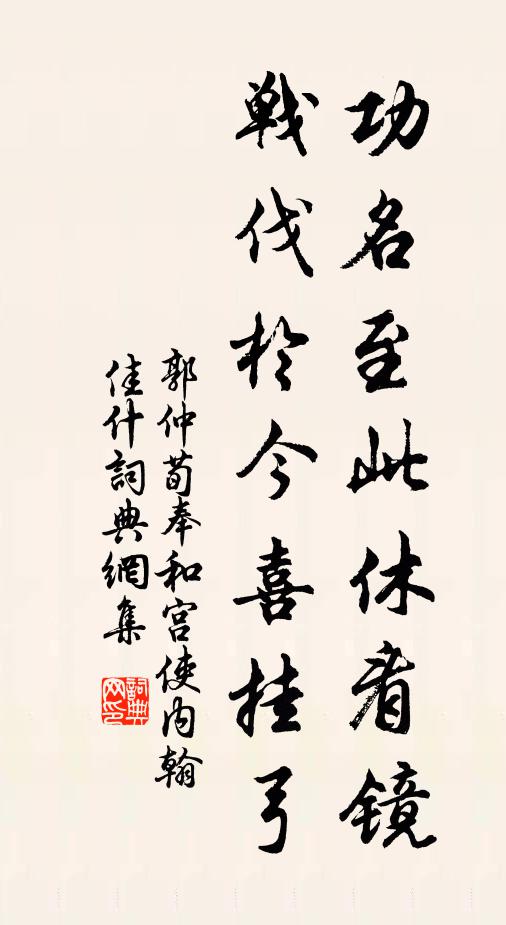 功名至此休看镜
戦伐於今喜挂弓
郭仲荀奉和宫使内翰
佳什詞典網集
詞典网印